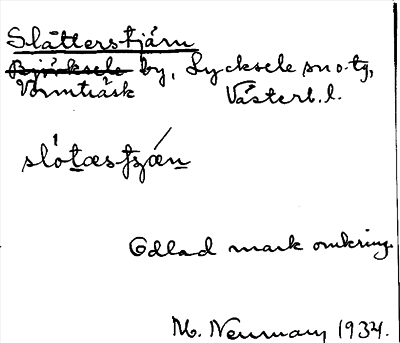 Slåtterstjärn
Björksele by, Lycksele sn o. tg,
Vormträsk Västerb. l.
slòtæstjæ̀n
Odlad mark omkring.
M. Neuman, 1934.